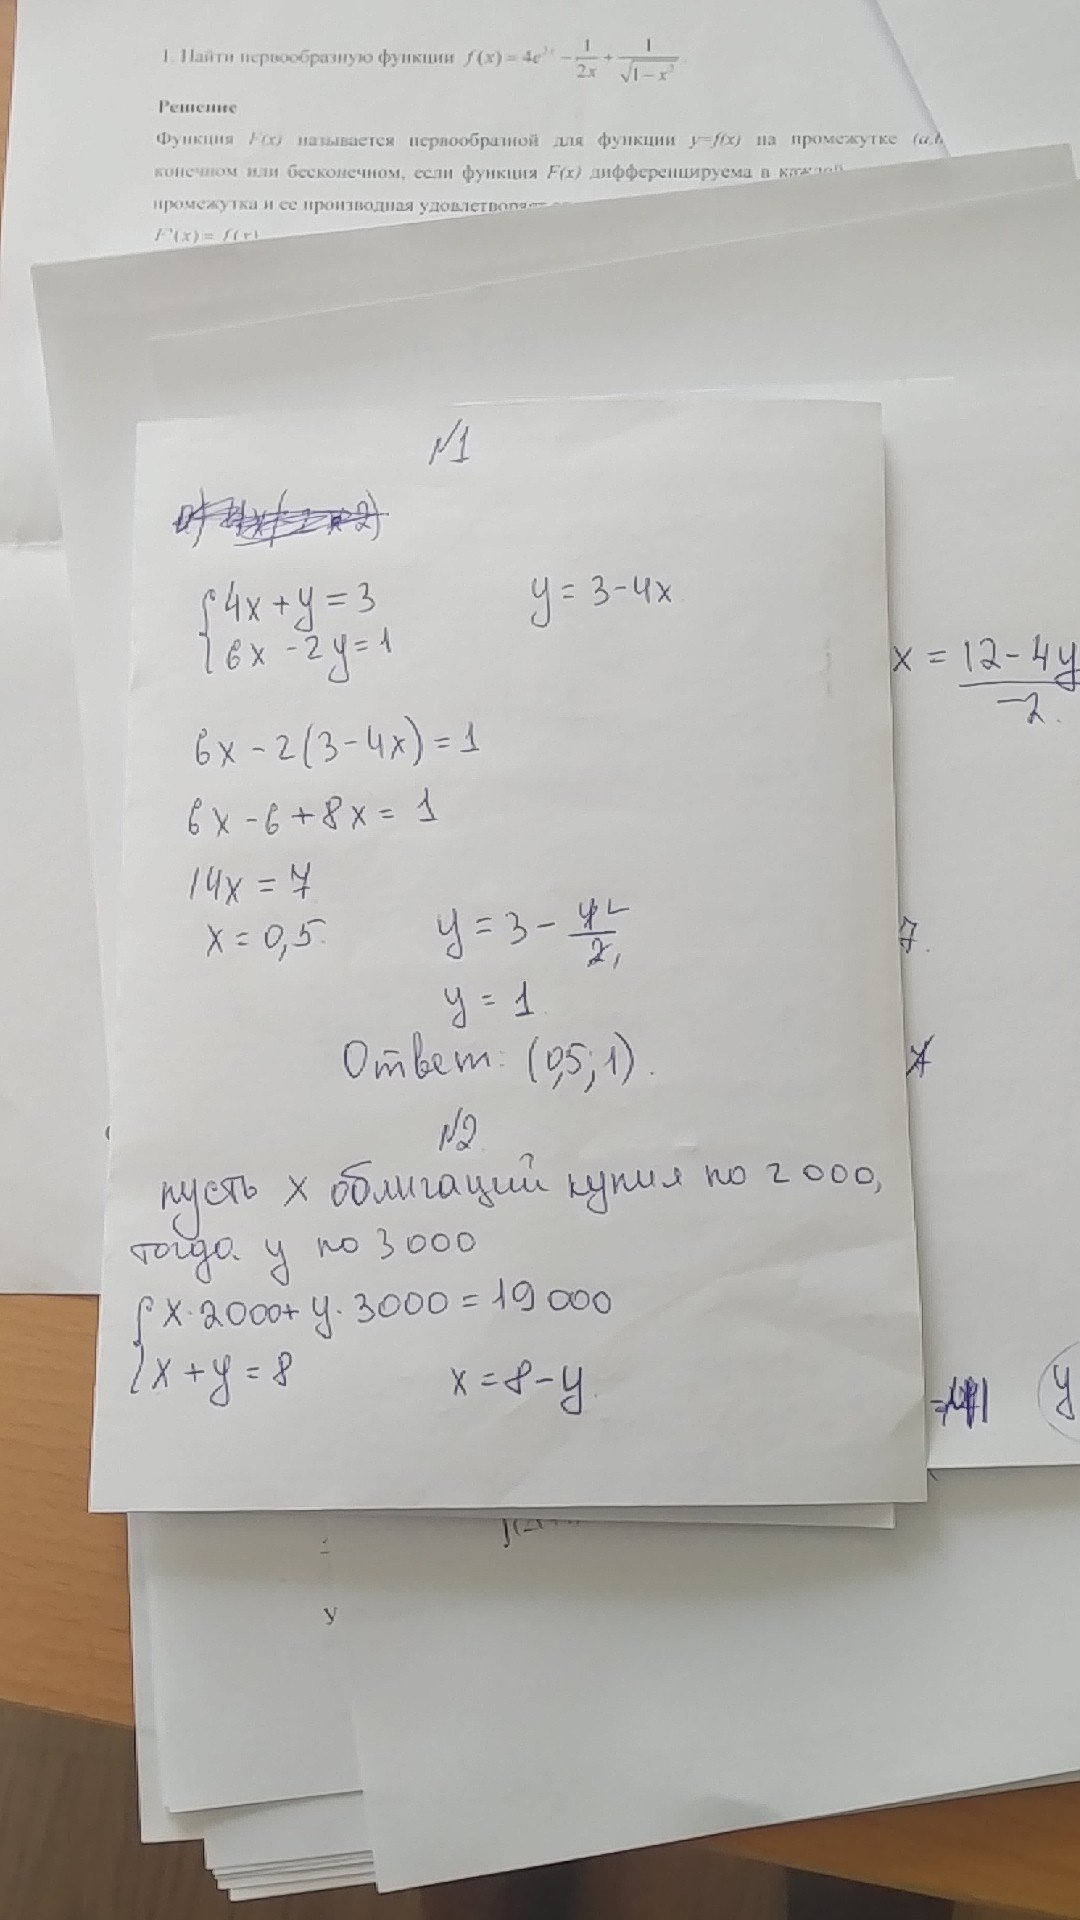 1. Найти первообразную функции f(x) = 4e - 1/2x + 1/√1 - x²
Решение
Функция F(x) называется первообразной для функции y=f(x) на промежутке (a,b
конечном или бесконечном, если функция F(x) дифференцируема в каждой
промежутка и ее производная удовлетворяет
F'(x) = f(x)
№1
{4x + y = 3 y = 3 - 4x
{6x - 2y = 1
x = 12 - 4y/-2.
6x - 2(3 - 4x) = 1
6x - 6 + 8x = 1
14x = 7
x = 0,5. y = 3 - 4/2
7.
y = 1.
Ответ: (0,5; 1).
№2
пусть x облигаций купил по 2 000,
тогда y по 3 000
{x · 2000 + y · 3000 = 19 000
{x + y = 8 x = 8 - y.
y
y